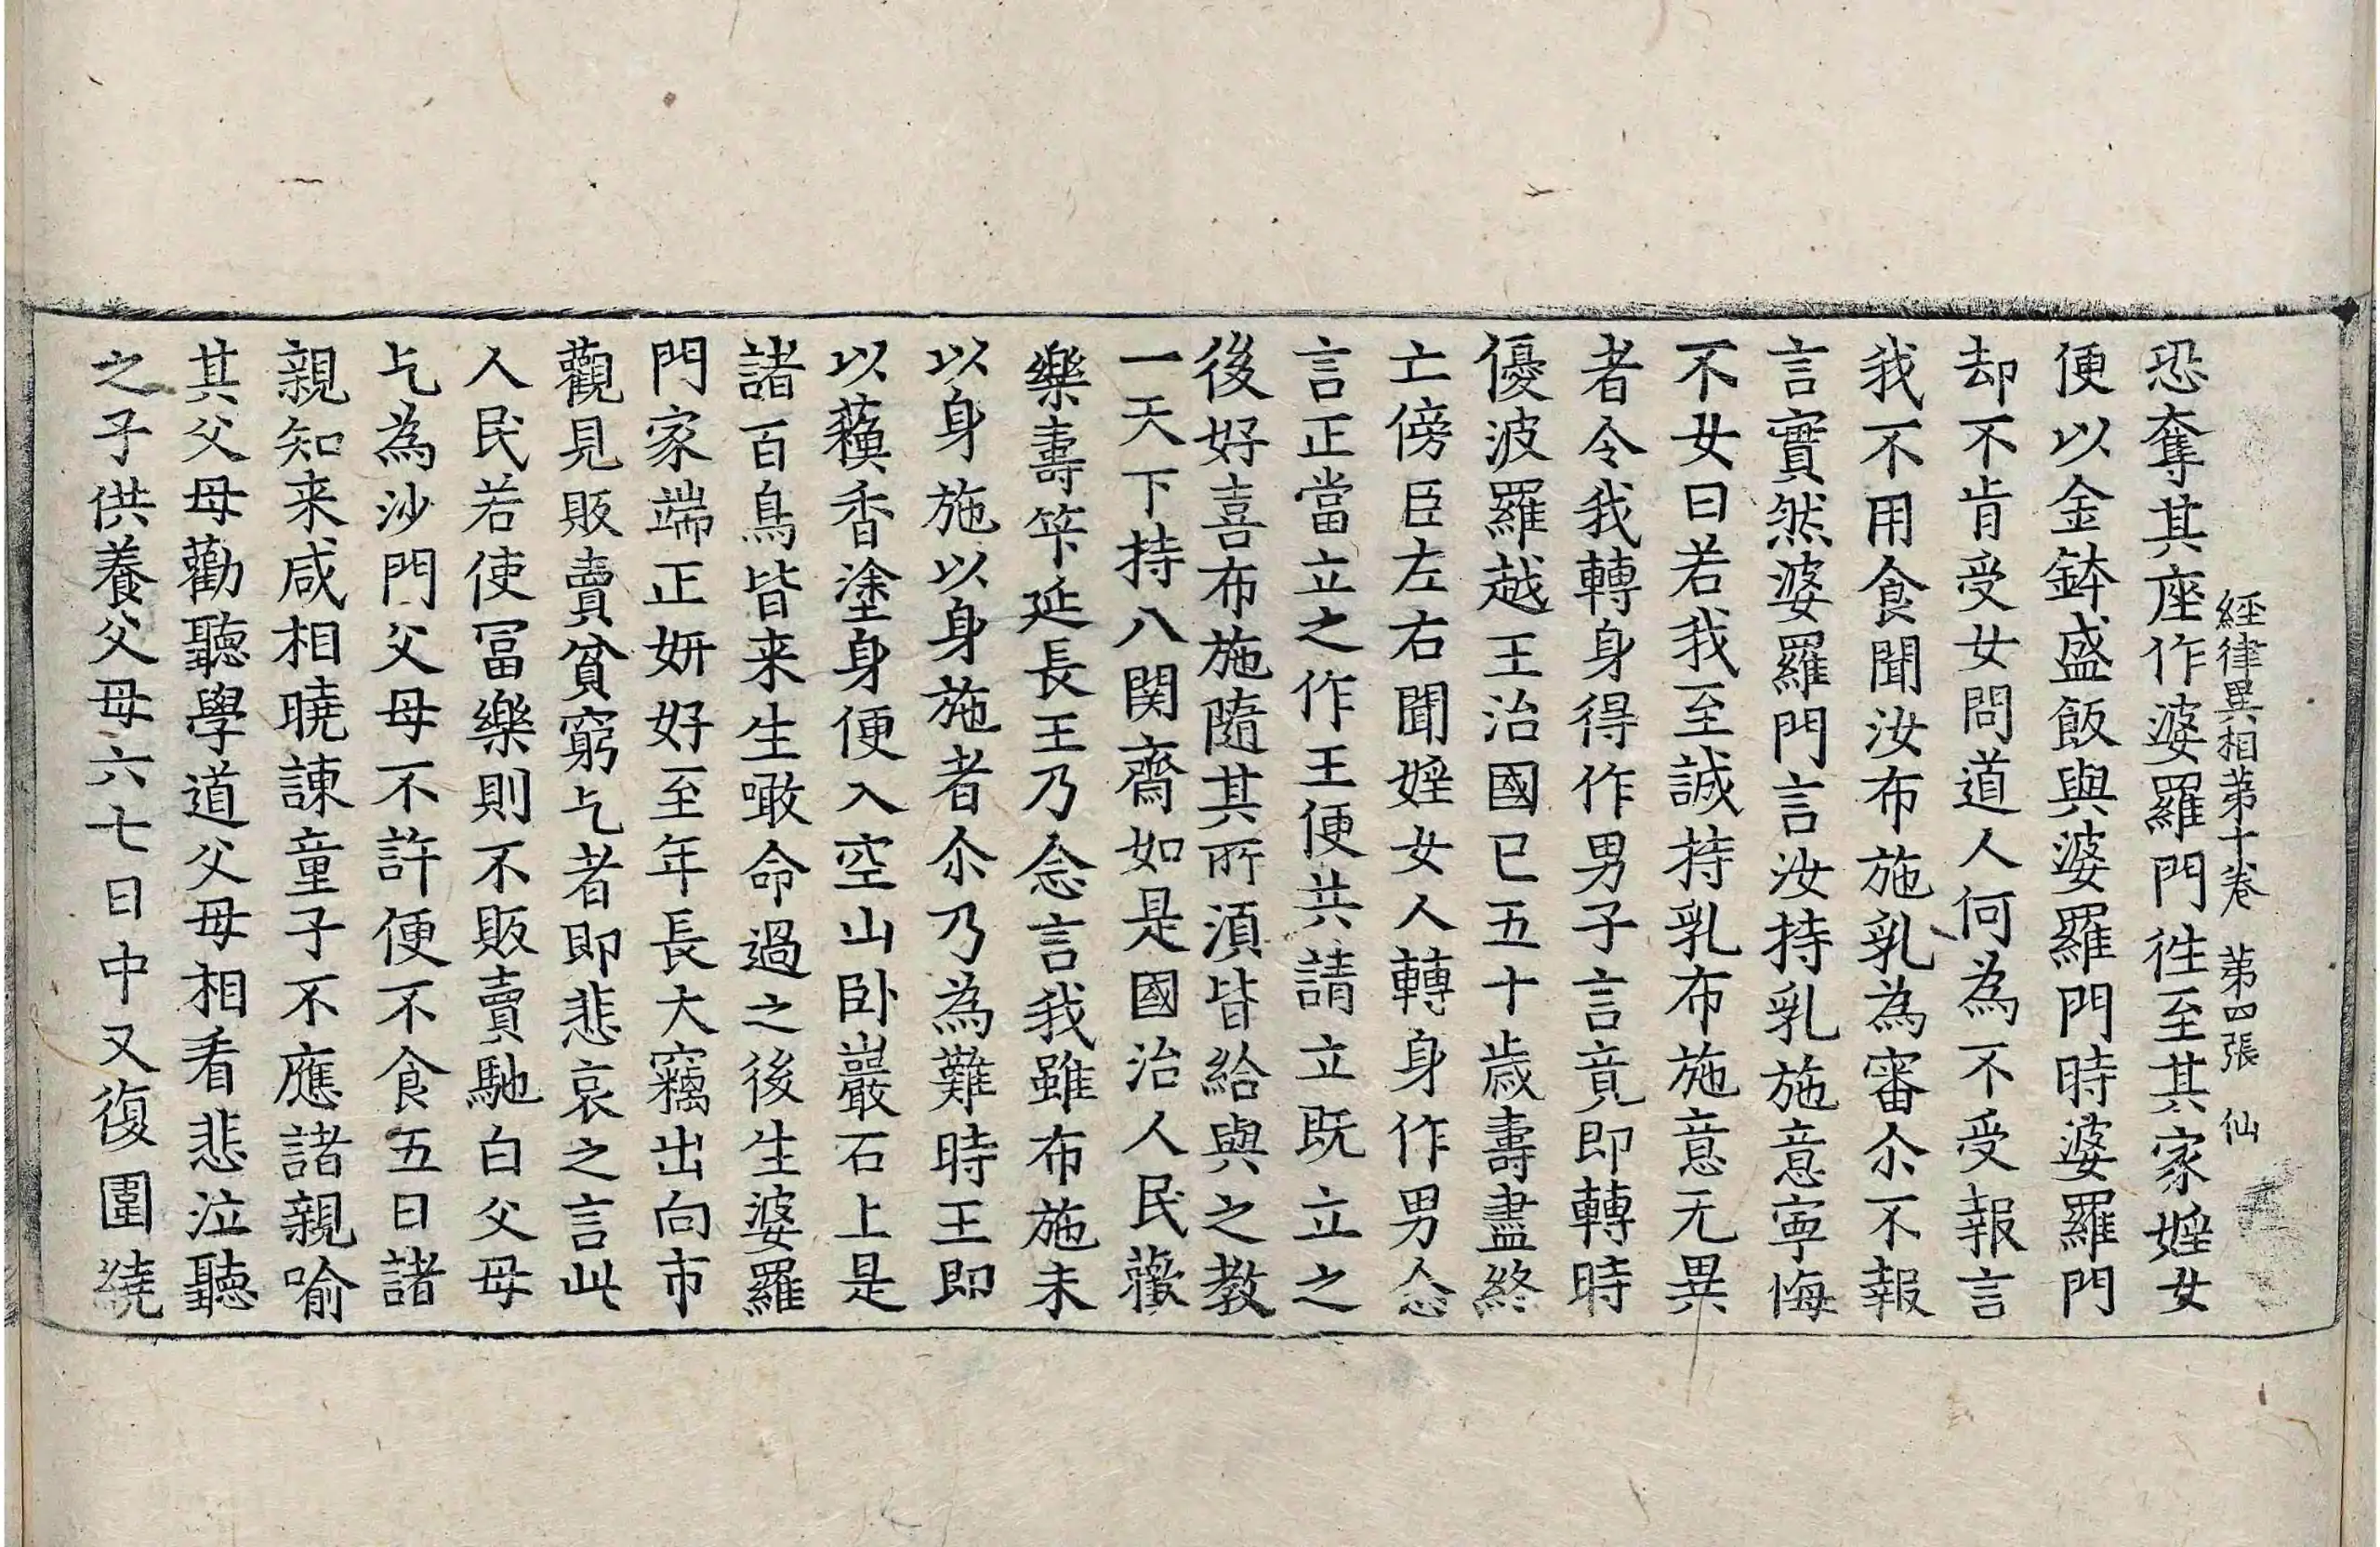 經律異相苐十卷 苐四張 仙
恐奪其座作婆羅門徃至其家婬女
便以金鉢盛飯與婆羅門時婆羅門
却不肯受女問道人何為不受報言
我不用食聞汝布施乳為審尒不報
言實然婆羅門言汝持乳施意寧悔
不女曰若我至誠持乳布施意无異
者令我轉身得作男子言竟即轉時
優波羅越王治國已五十歳壽盡終
亡傍臣左右聞婬女人轉身作男念
言正當立之作王便共請立既立之
後好喜布施隨其所湏皆給與之教
一天下持八関齋如是國治人民歡
樂壽筭延長王乃念言我雖布施未
以身施以身施者尒乃為難時王即
以蘓香塗身便入空山卧巖石上是
諸百鳥皆来生噉命過之後生婆羅
門家端正妍好至年長大竊出向市
觀見販賣貧窮乞者即悲哀之言此
人民若使冨樂則不販賣馳白父母
乞為沙門父母不許便不食五日諸
親知来咸相曉諫童子不應諸親喻
其父母勸聽學道父母相看悲泣聽
之子供養父母六七日中又復圍繞